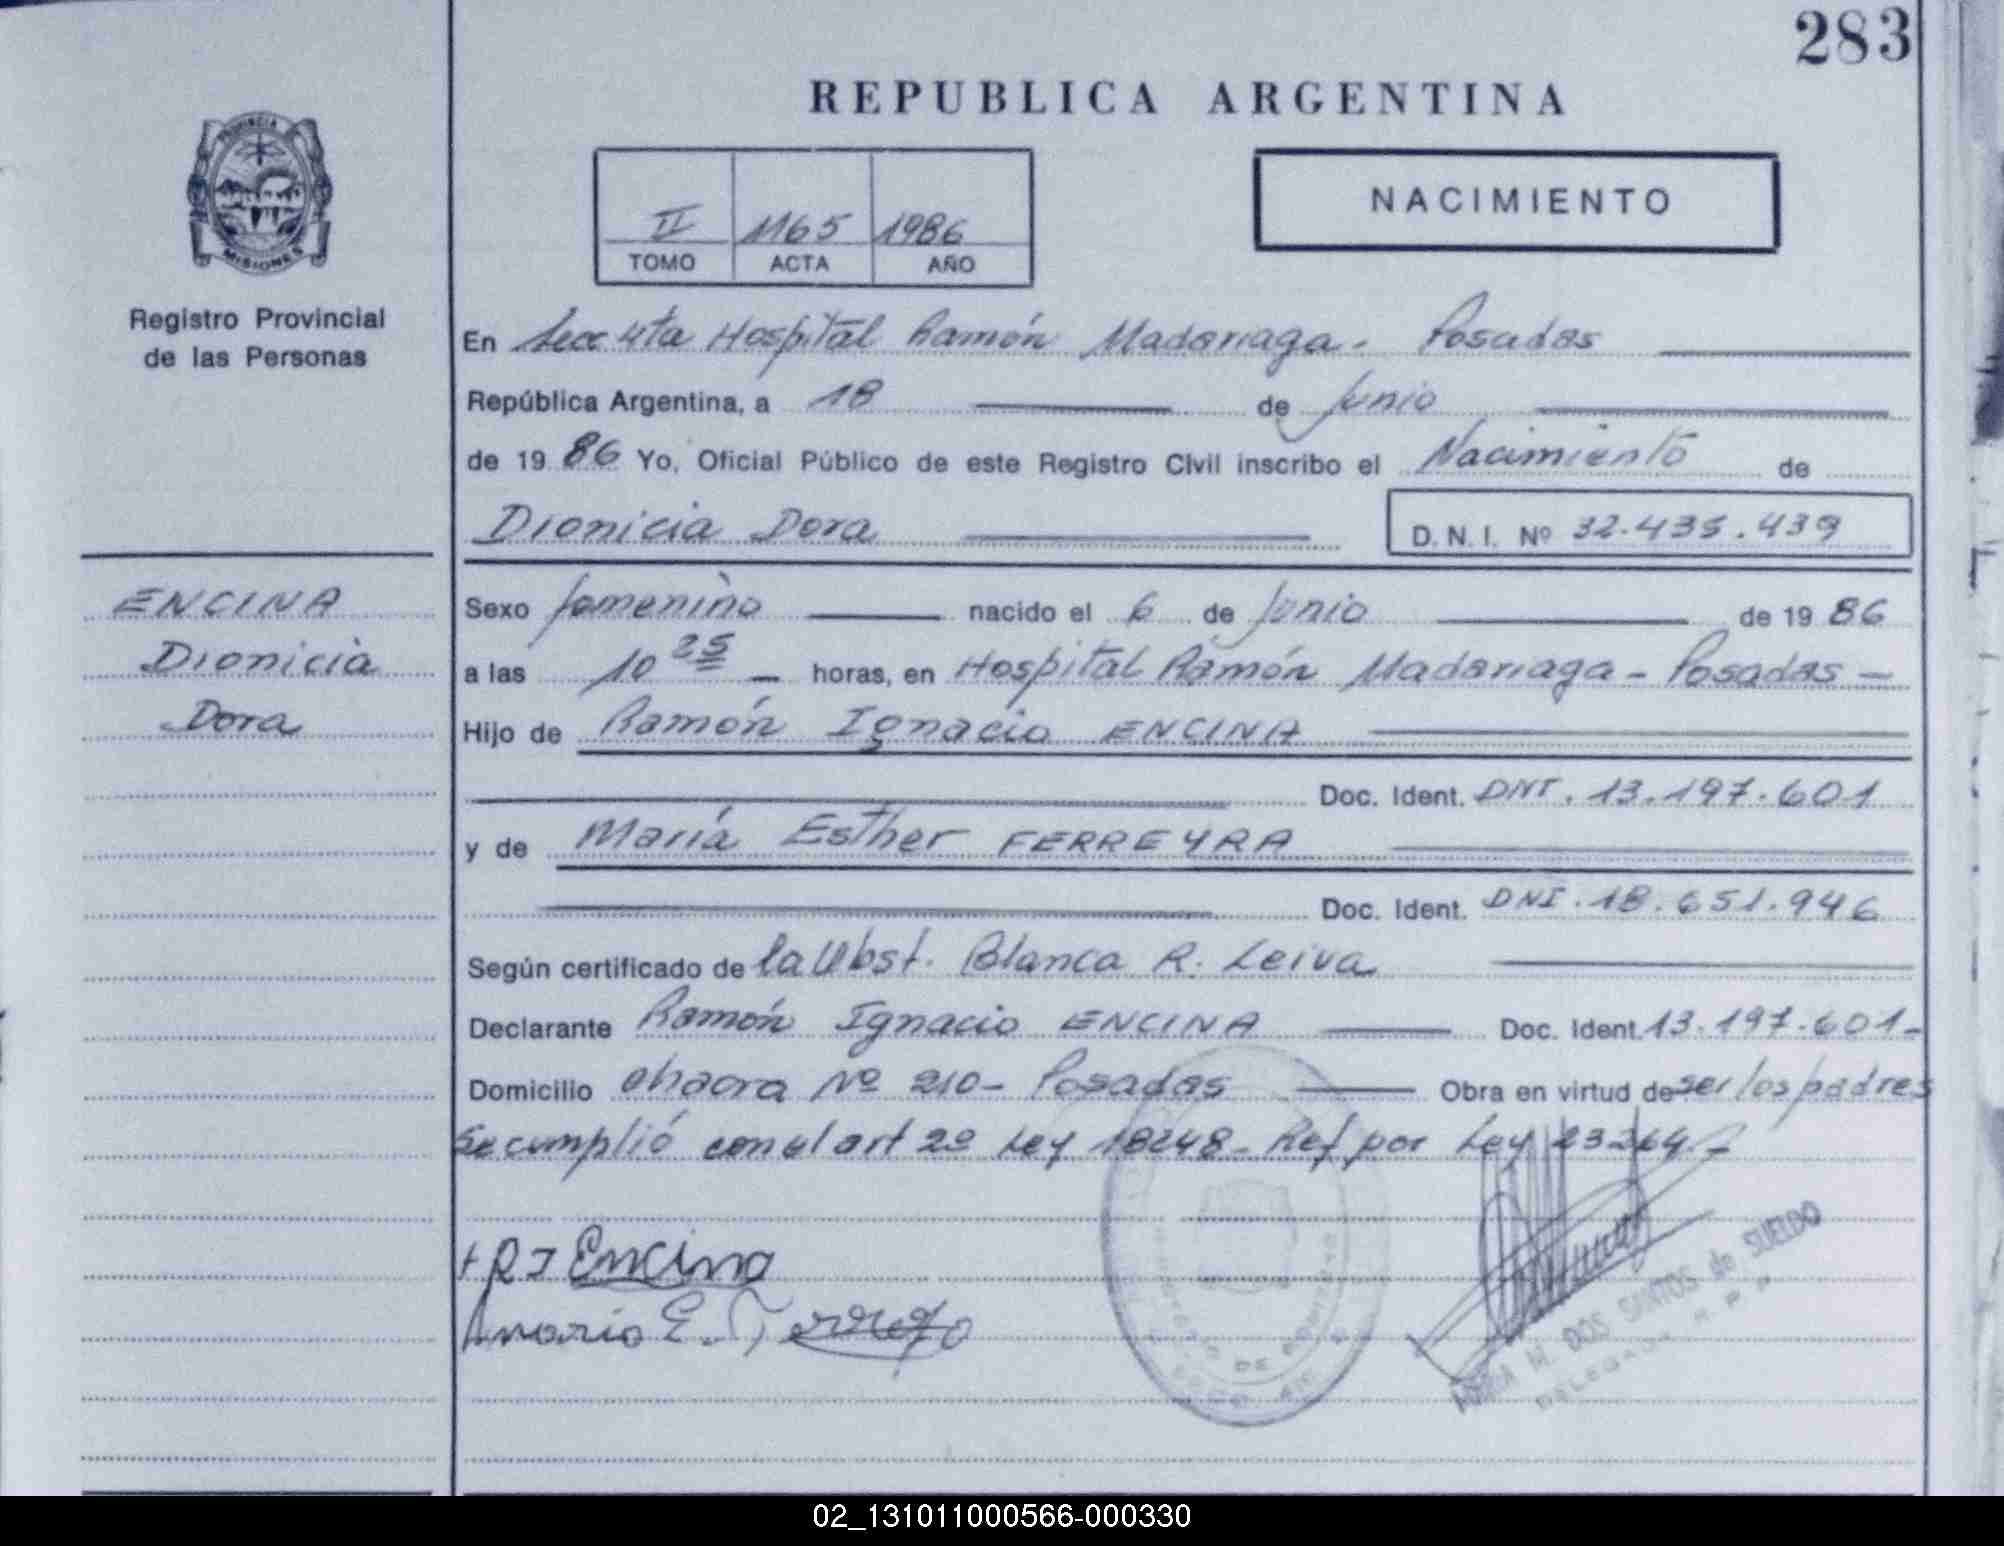 283
REPUBLICA ARGENTINA
PROVINCIA DE
MISIONES
Registro Provincial
de las Personas
NACIMIENTO
II 1165 1986
TOMO ACTA AÑO
En Secc 4ta Hospital Ramón Madariaga - Posadas
República Argentina, a 18 de Junio
de 19 86 Yo, Oficial Público de este Registro Civil inscribo el Nacimiento de
Dionicia Dora D.N.I. Nº 32.435.439
ENCINA
Dionicia
Dora
Sexo femenino nacido el 6 de Junio de 19 86
a las 10 25 horas, en Hospital Ramón Madariaga - Posadas -
Hijo de Ramón Ignacio ENCINA
Doc. Ident. DNI. 13.197.601
y de María Esther FERREYRA
Doc. Ident. DNI. 18.651.946
Según certificado de la Obst. Blanca R. Leiva
Declarante Ramón Ignacio ENCINA Doc. Ident. 13.197.601-
Domicilio chacra Nº 210- Posadas Obra en virtud de ser los padres
Se cumplió con el art 2º Ley 18248- Ref por Ley 23264.-
+ R I Encina
Maria E. Ferreyra
M. DOS SANTOS de SUELDO
DELEGADA R. P. P.
02_131011000566-000330